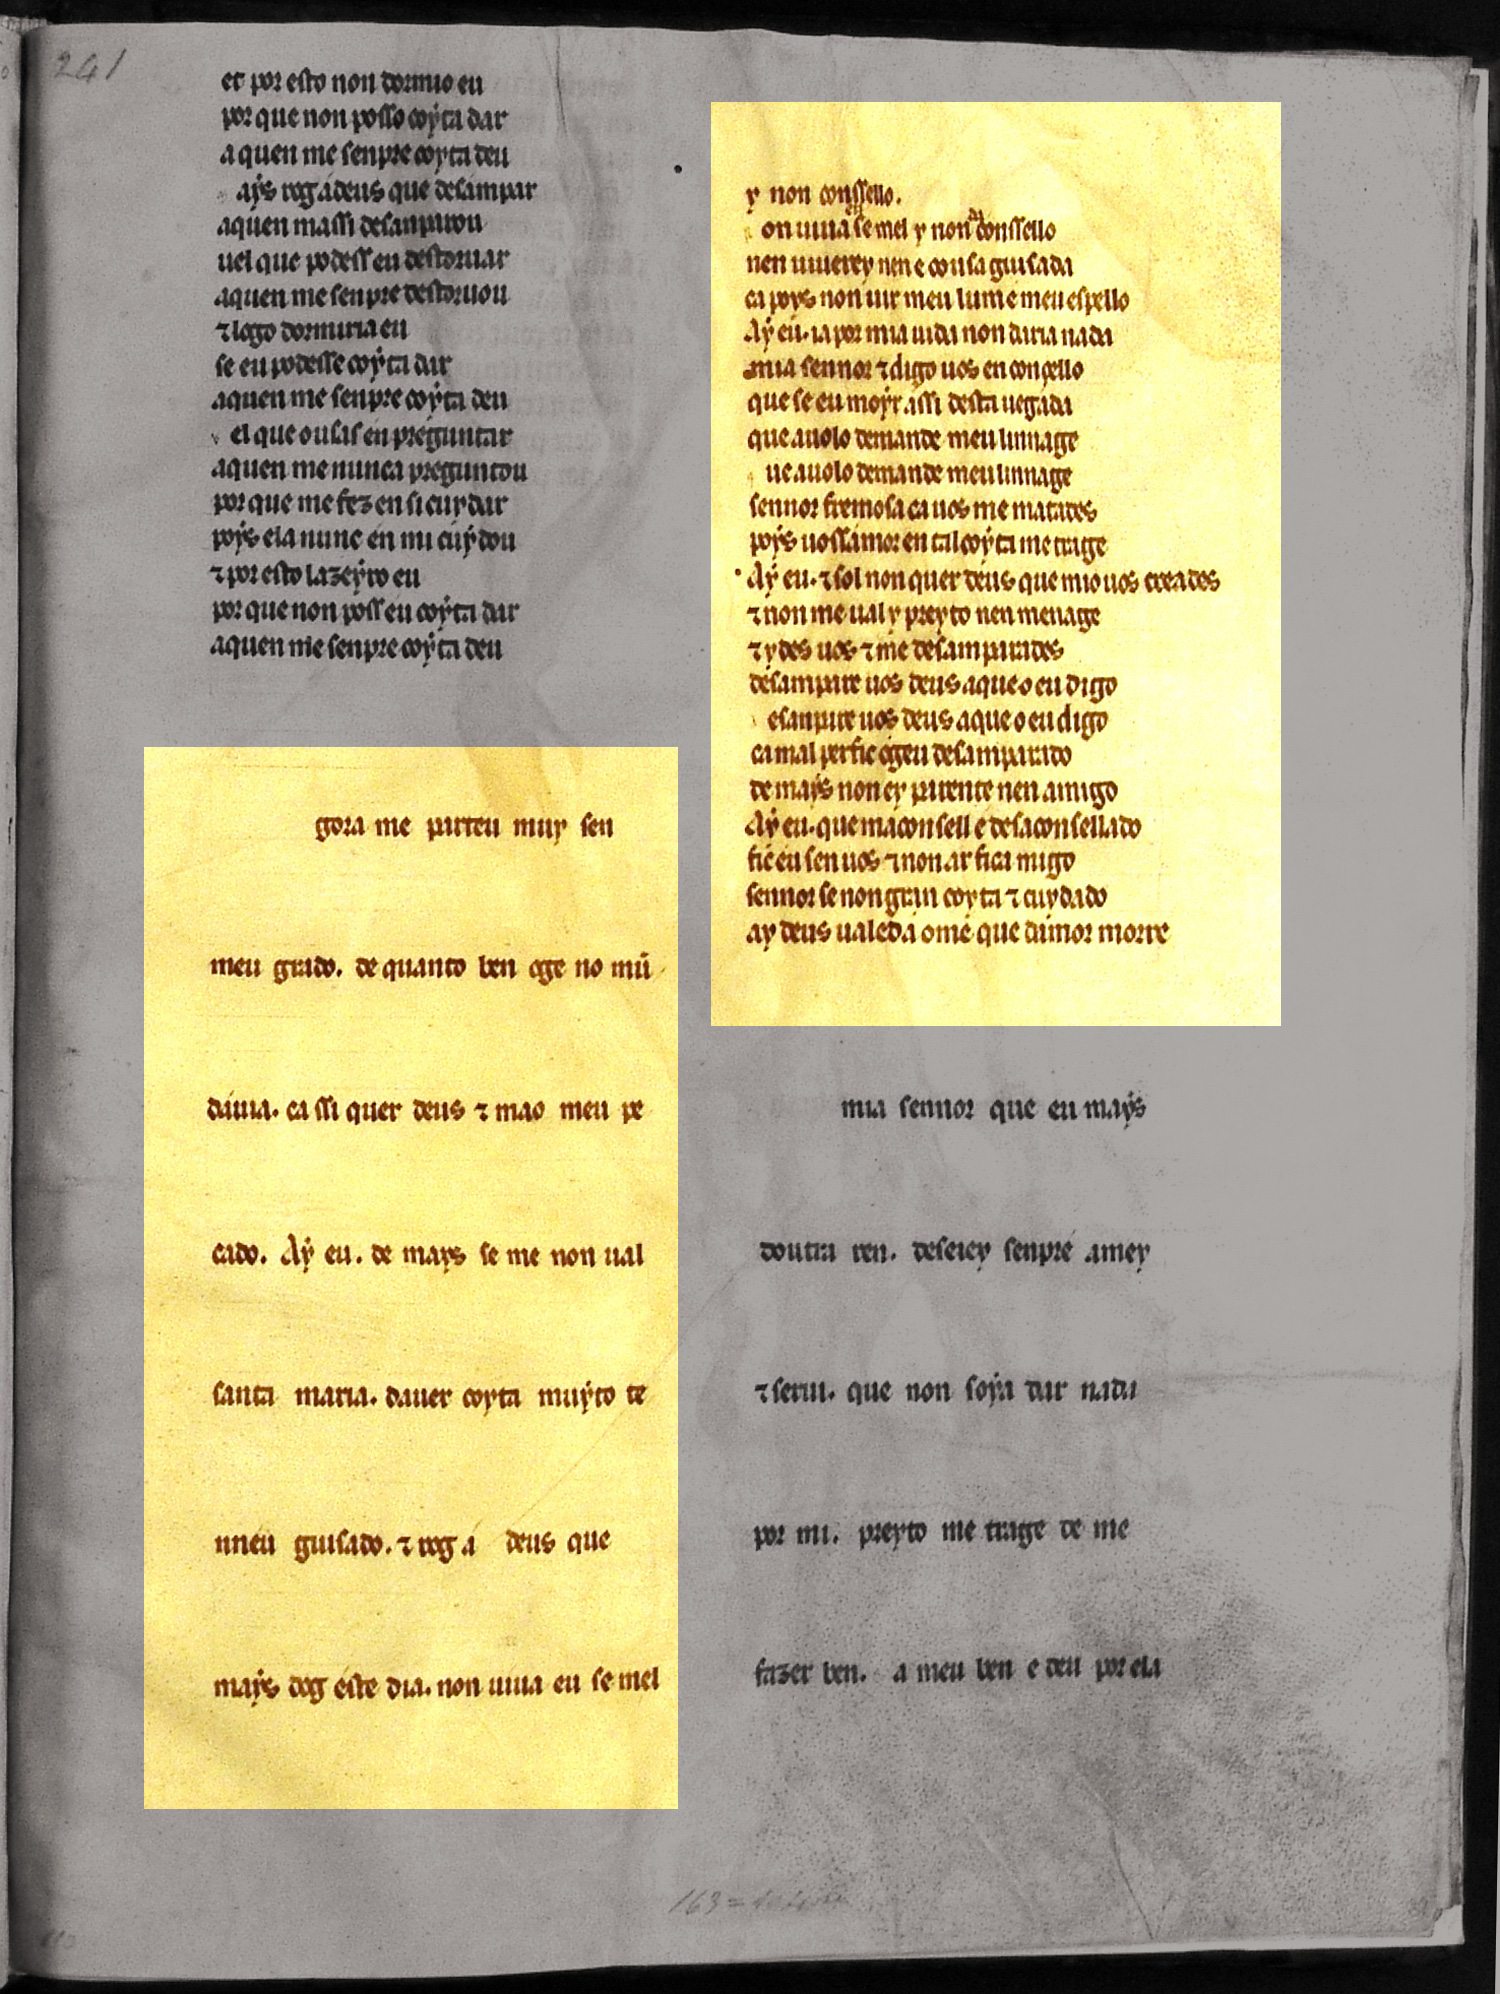 241
et por esto non dormio eu
por que non posso coÿta dar
a quen me senpre coyta deu
aÿs rog a deus que desampar
a quen massi desanparou
uel que podess eu destoruar
a quen me senpre destoruou
⁊ logo dormiria eu
se eu podesse coÿta dar
aquen me senpre coÿta deu
el que ousass en preguntar
aquen me nunca preguntou
por que me fez en si cuydar
poÿs ela nunc en mi cuÿdou
⁊ por esto lazeÿro eu
por que non poss eu coÿta dar
aquen me senpre coÿta deu
gora me parteu muy sen
meu grado. de quanto ben oge no mū
dauia. ca ssi quer deus ⁊ mao meu pe
cado. Aÿ eu. de mays se me non ual
santa maria. dauer coyta muÿto te
nneu guisado. ⁊ rog a deus que
maÿs dog este dia. non uiua eu se mel
y non conssello.
on uiua se mel y non da conssello
nen uiuerey nen e cousa guisada
ca poys non uir meu lume meu espello
Aÿ eu. ia por mia uida non daria nada
mia sennor ⁊ digo uos en conçello
que se eu moÿr assi desta uegada
que auolo demande meu linnage
ue auolo demande meu linnage
sennor fremosa ca uos me matades
poÿs uossamor en tal coÿta me trage
Aÿ eu. ⁊ sol non quer deus que mio uos creades
⁊ non me ual y preyto nen menage
⁊ ydes uos ⁊ me desamparades
desampare uos deus a que o eu digo
esanpare uos deus a que o eu digo
ca mal per fic ogeu desamparado
de maÿs non ey parente nen amigo
Aÿ eu. que maconsell e desaconsellado
fic eu sen uos ⁊ non ar fica migo
sennor se non gran coyta ⁊ cuydado
ay deus ualed a ome que damor morre
mia sennor que eu maÿs
doutra ren. deseiey senpre amey
⁊ serui. que non soÿa dar nada
por mi. preyto me trage de me
fazer ben. a meu ben e deu por ela